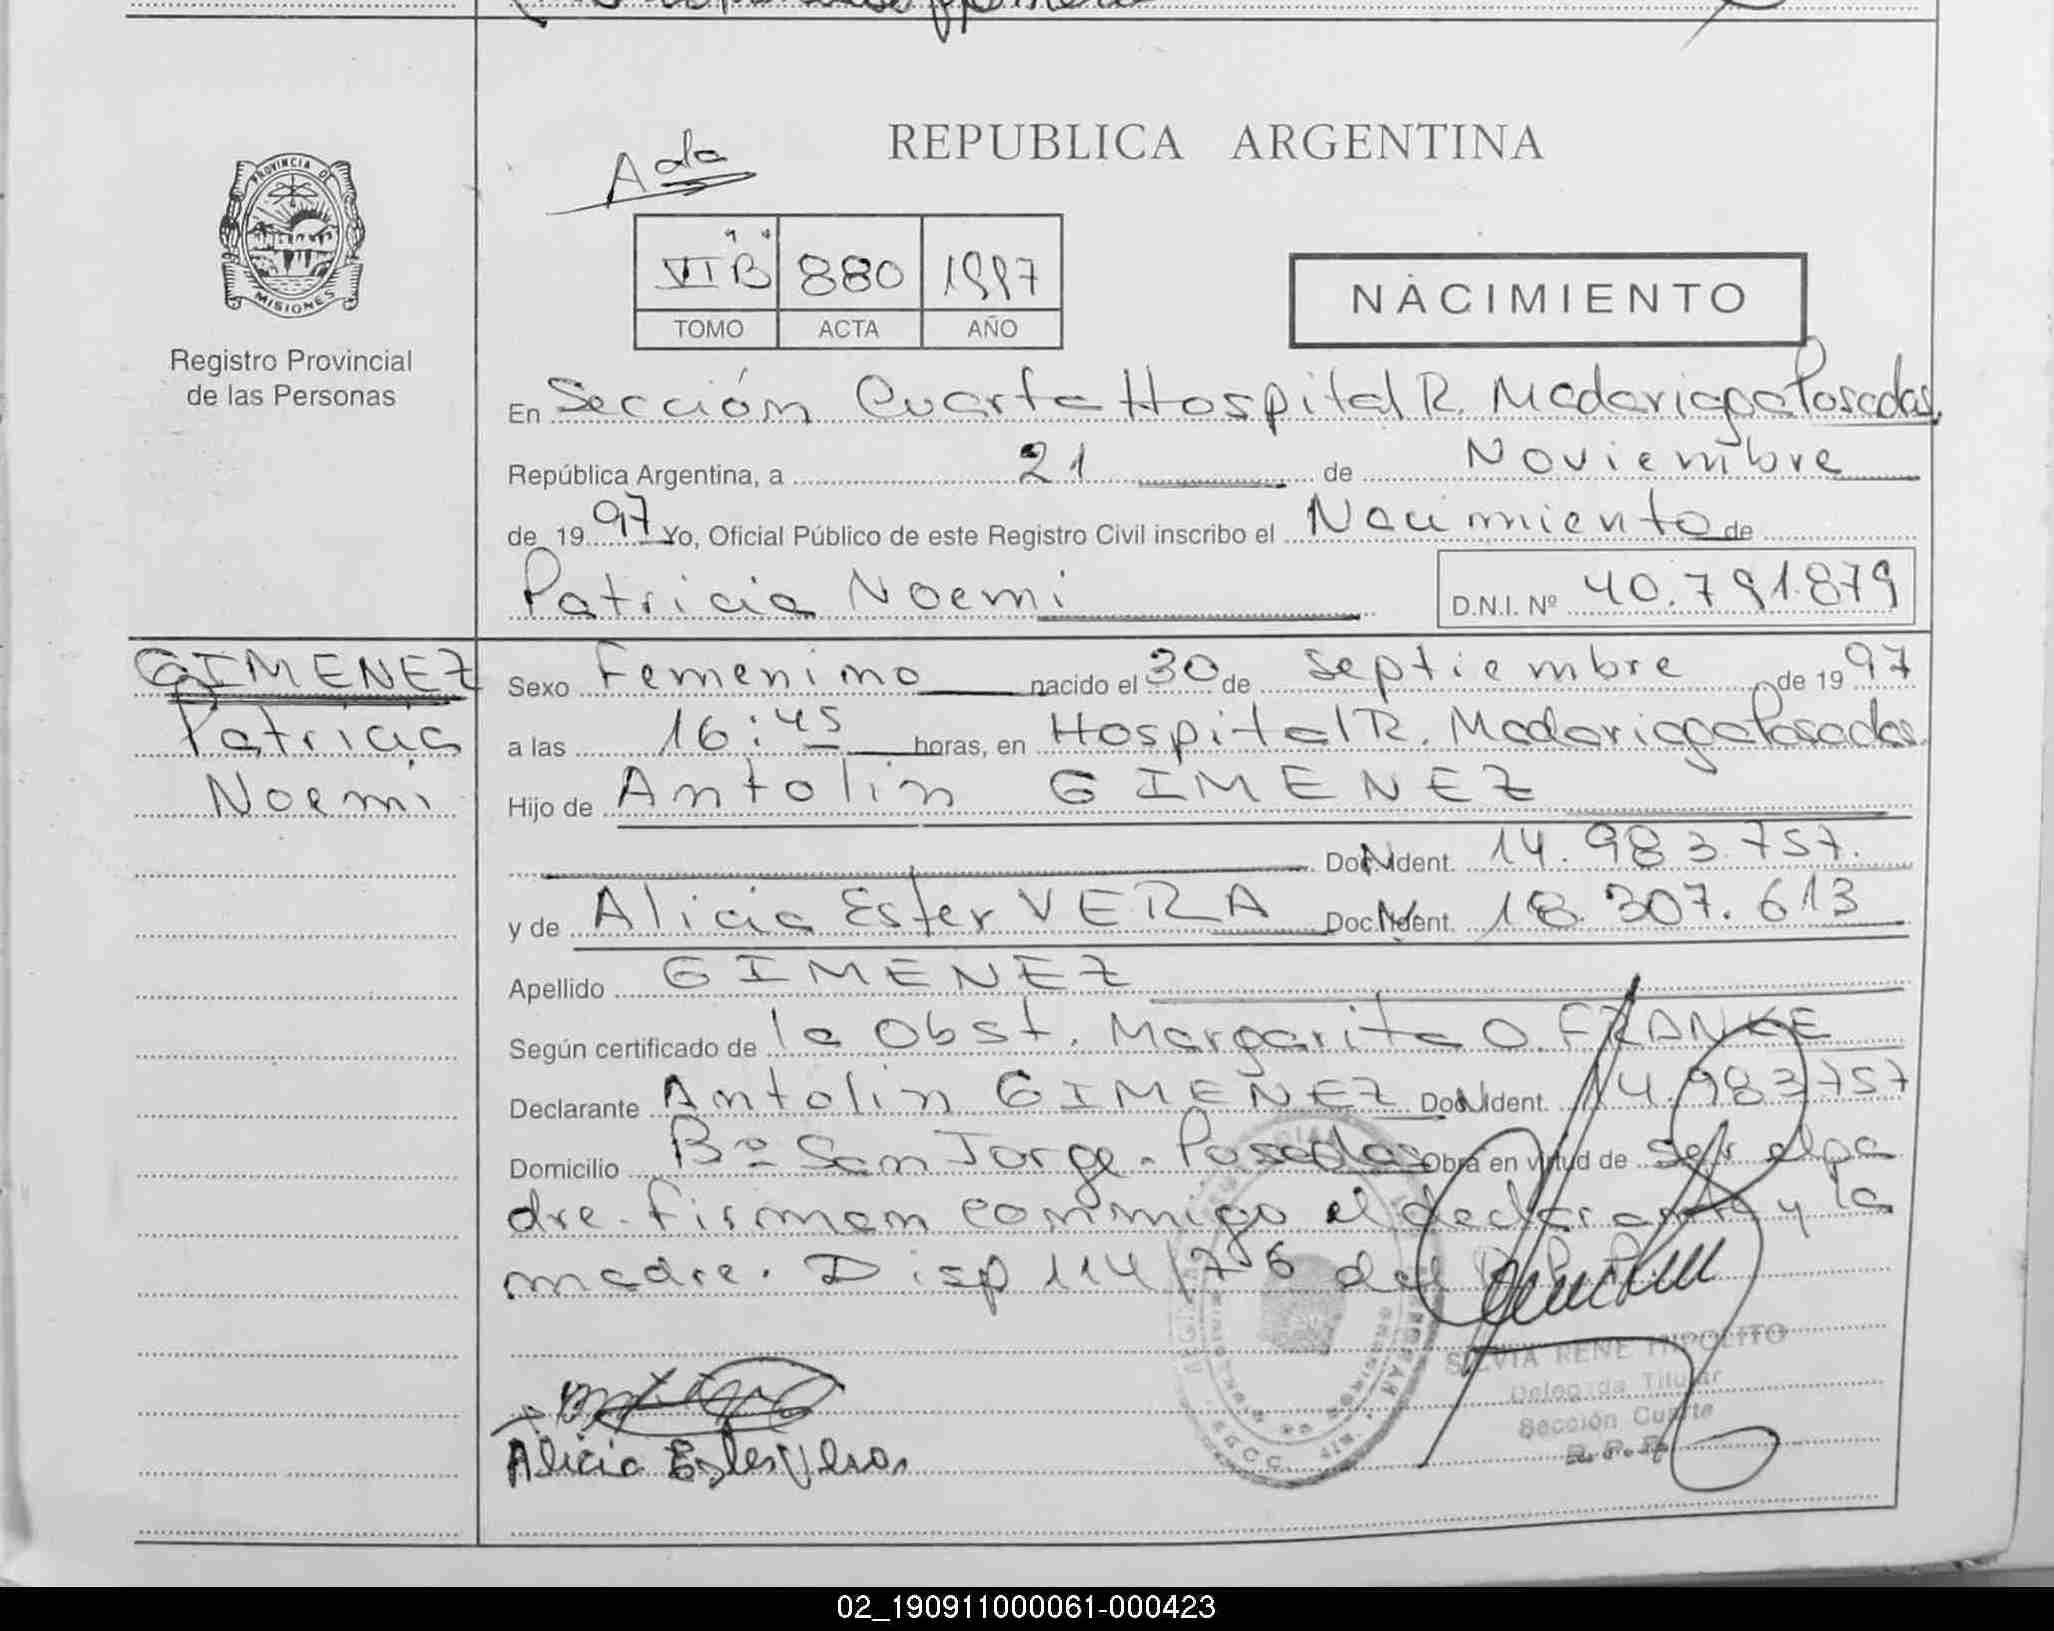 Ada
REPUBLICA ARGENTINA
PROVINCIA DE
MISIONES
Registro Provincial
de las Personas
VI "B" 880 1997
TOMO ACTA AÑO
NACIMIENTO
En Sección Cuarta Hospital R. Madariaga Posadas,
República Argentina, a 21 de Noviembre
de 1997 Yo, Oficial Público de este Registro Civil inscribo el Nacimiento de
Patricia Noemi D.N.I. Nº 40.791.879
GIMENEZ
Patricia
Noemi
Sexo Femenino nacido el 30 de septiembre de 1997
a las 16:45 horas, en Hospital R. Madariaga Posadas.
Hijo de Antolin GIMENEZ
Doc. N Ident. 14.983.757.
y de Alicia Ester VERA Doc. N Ident. 18.307.613
Apellido GIMENEZ
Según certificado de la Obst. Margarita O. FRANKE
Declarante Antolin GIMENEZ Doc. N Ident. 14.983757
Domicilio Bº San Jorge - Posadas Obra en virtud de ser el pa
dre - firman conmigo el declarante y la
madre. Disp 114/76 del
SILVIA RENE HIPOLITO
Delegada Titular
Sección Cuarta
R.P.P.
Alicia Ester Vera
02_190911000061-000423